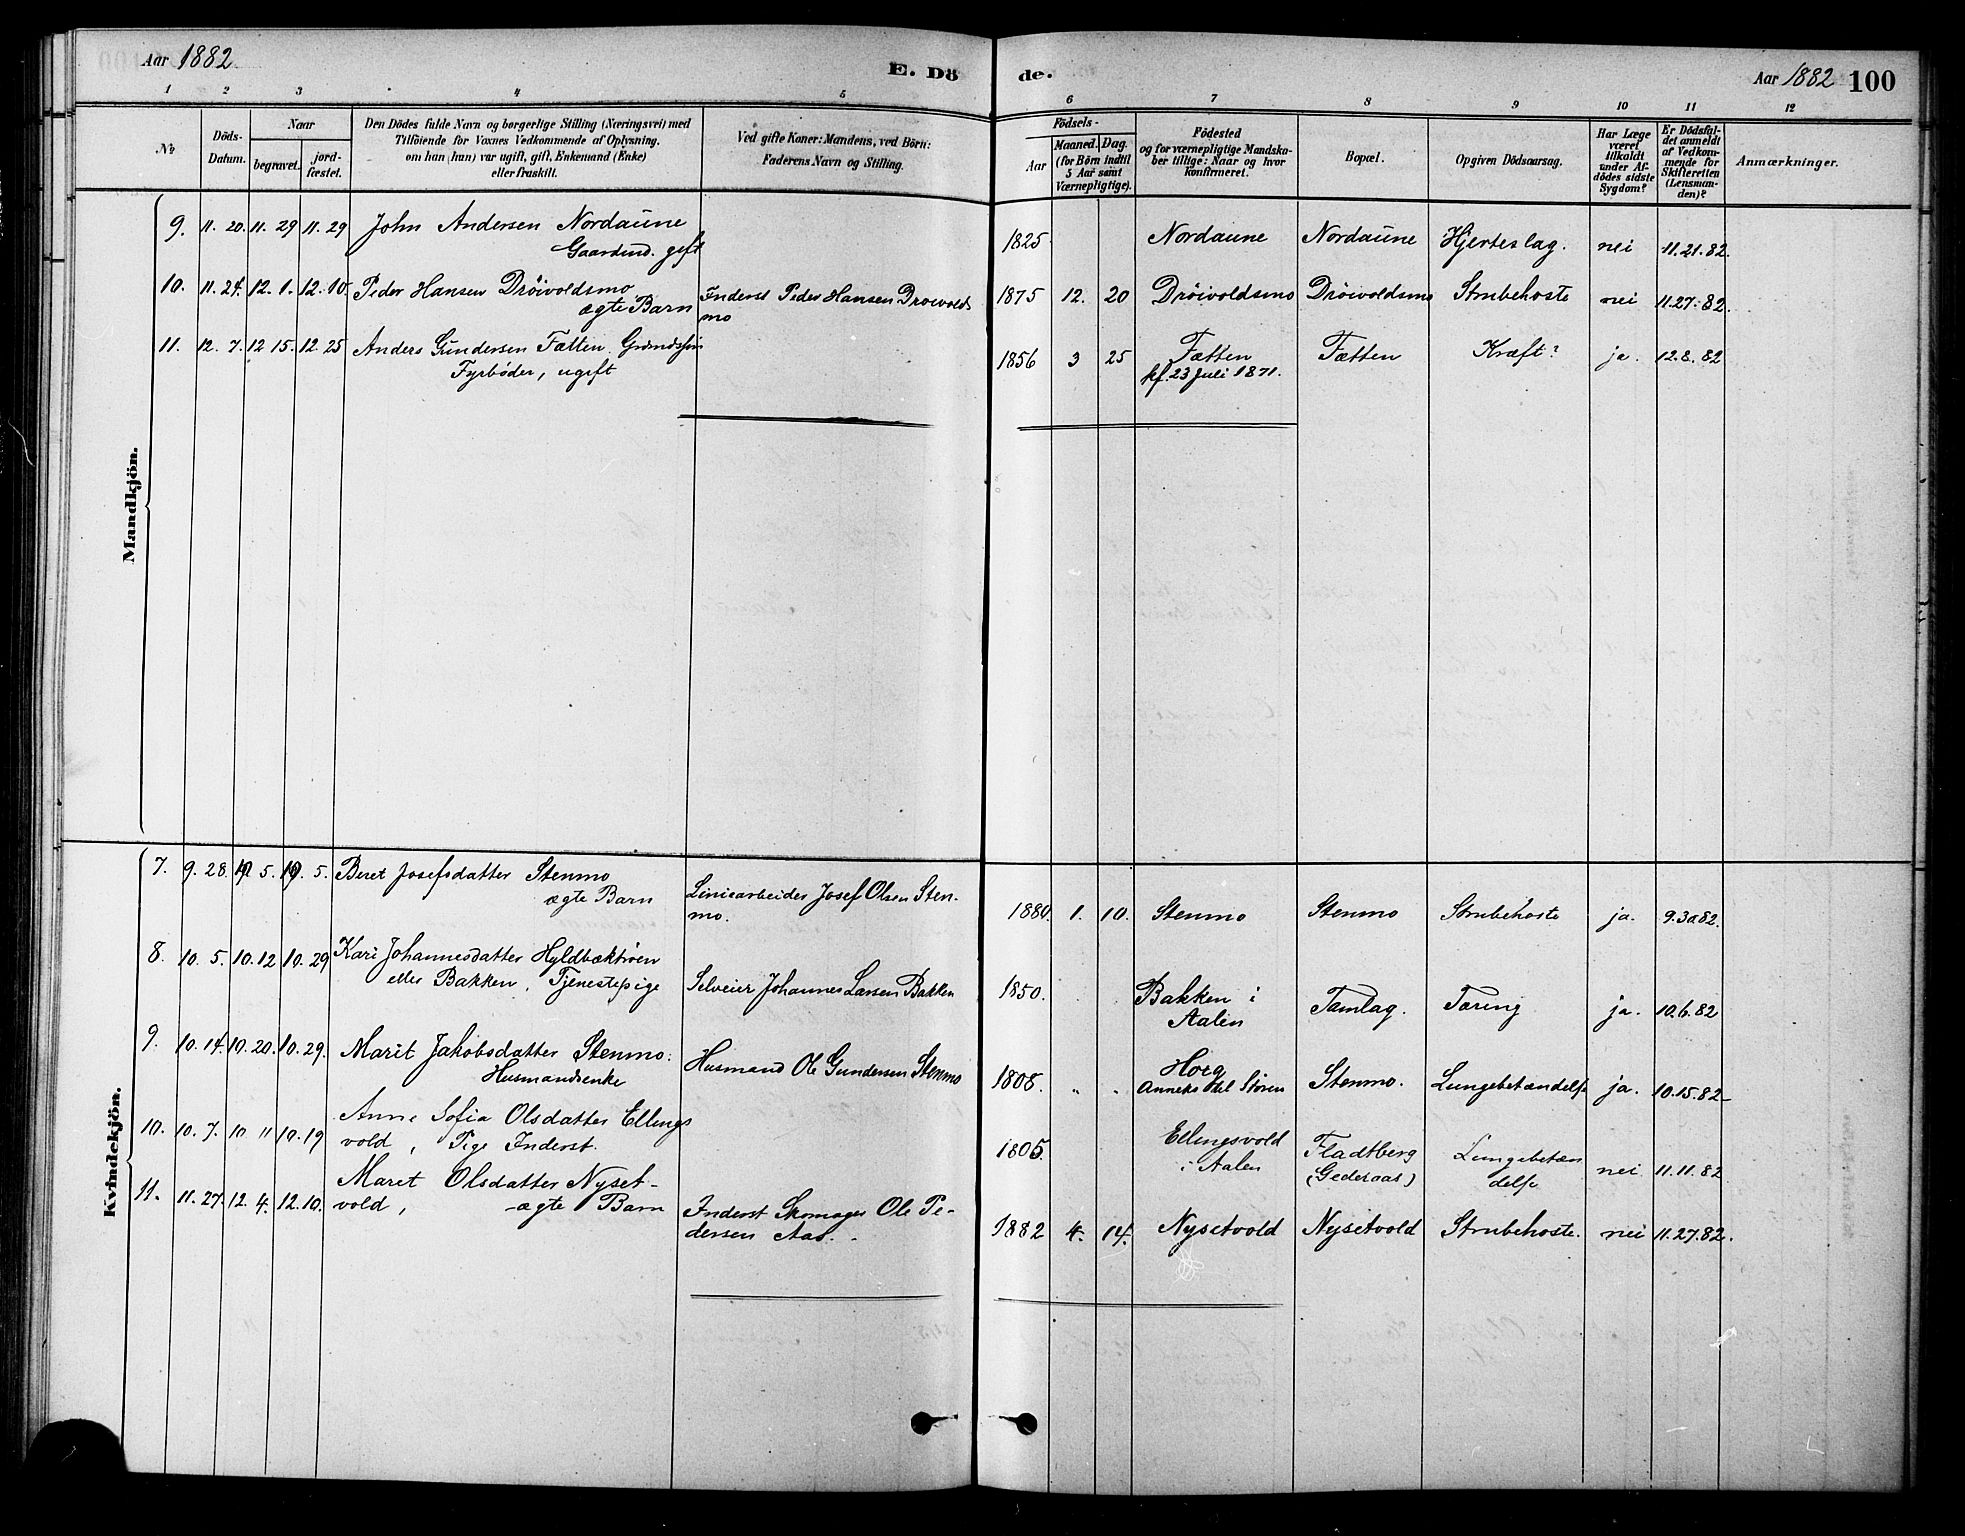 Aar 1882
E. Dö
de.
Aar 1882 100
1 2 3 4 5 6 7 8 9 10 11 12
№
Döds-
Datum.
Naar
begravet.
jord-
fæstet.
Den Dödes fulde Navn og borgerlige Stilling (Næringsvei) med
Tilföiende for Voxnes Vedkommende af Oplysning,
om han (hun) var ugift, gift, Enkemand (Enke)
eller fraskilt.
Ved gifte Koner: Mandens, ved Börn:
Faderens Navn og Stilling.
Födsels-
Aar
Maaned. Dag.
(for Börn indtil
5 Aar samt
Værnepligtige).
Födested
og for værnepligtige Mandska-
ber tillige: Naar og hvor
konfirmeret.
Bopæl.
Opgiven Dödsaarsag.
Har Læge
været
tilkaldt
under Af-
dödes sidste
Sygdom?
Er Dödsfal-
det anmeldt
af Vedkom-
mende for
Skifteretten
(Lensman-
den)?
Anmærkninger.
Mandkjön.
9. 11. 20. 11. 29 11. 29 John Andersen Nordaune
Gaardmd. gift
1825. Nordaune Nordaune Hjerteslag. nei 11.21.82.
10. 11. 24. 12. 1. 12. 10. Peder Hansen Dröivoldsmo
ægte Barn
Inderst Peder Hansen Dröivolds
mo
1875 12. 20 Dröivoldsmo Dröivoldsmo Strubehoste nei 11.27.82.
11. 12. 7. 12 15. 12. 25 Anders Gundersen Fætten
Fyrbøder, ugift
1856 3 25 Fætten
kf. 23 Juli 1871.
Fætten Kræft? ja. 12.8.82
Kvindekjön.
7. 9. 28. 5. 5. Beret Josefsdatter Stenmo
ægte Barn
Liniearbeider Josef Olsen Sten-
mo.
1880. 1. 10. Stenmo Stenmo Strubehoste ja. 9.30.82.
8. 10. 5. 10. 12 10. 29 Kari Johannesdatter Hyldbæktrøen
eller Bakken, Tjenestepige
Selveier Johannes Larsen Bakken
1850. Bakken i
Aalen
Tamlag. Tæring ja. 10.6.82
9. 10. 14. 10. 20. 10. 29. Marit Jakobsdatter Stenmo.
Husmandsenke
Husmand Ole Gundersen Stenmo
1808. " " Horg
Anneks til Støren
Stenmo. Lungebetændelse ja. 10.15.82
10. 10. 7. 10 " 10. 19 Anne Sofia Olsdatter Ellings
vold, Pige Inderst.
1805. Ellingsvold
i Aalen
Fladtberg
(Gederaas)
Lungebetæn
delse
nei 11.11.82
11. 11. 27. 12. 4. 12. 10. Maret Olsdatter Nyset-
vold, ægte Barn
Inderst Skomager Ole Pe-
dersen Aas.
1882 4. 14. Nysetvold Nysetvold Strubehoste. nei 11.27.82.